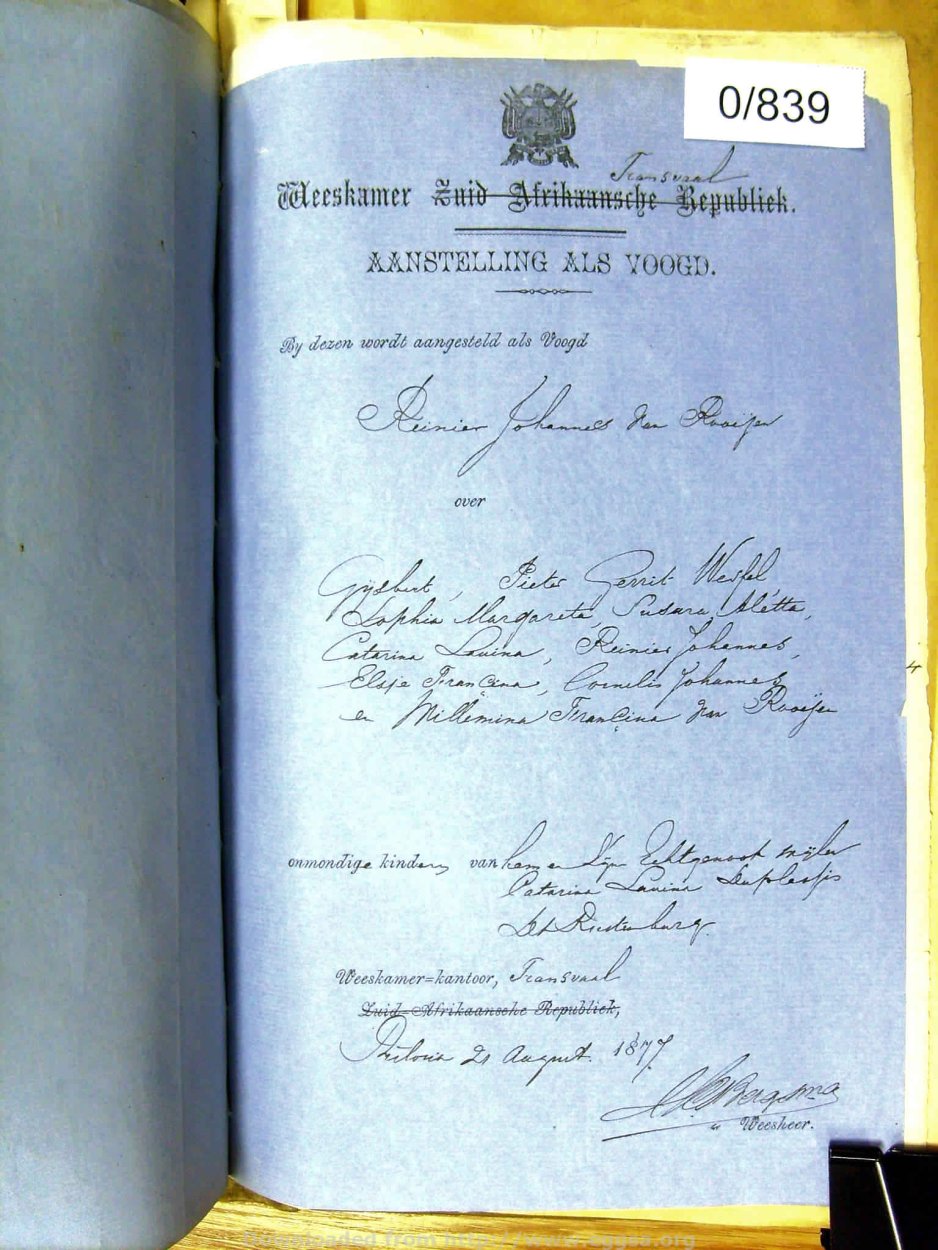 0/839
Transvaal
Weeskamer Zuid-Afrikaansche Republiek.
AANSTELLING ALS VOOGD.
By dezen wordt aangesteld als Voogd
Reinier Johannes van Rooijen
over
Gijsbert, Pieter Gerrit Wessel
Sophia Margareta, Susara Aletta,
Catarina Lavina, Reinier Johannes,
Elsje Francina, Cornelis Johannes
en Willemina Francina van Rooijen
onmondige kinders van hem en Echtgenoot wijlen
Catarina Lavina Duplessis
Rustenburg
Weeskamer=kantoor, Transvaal
Zuid-Afrikaansche Republiek,
Pretoria 21 August. 1877
Bergsma
Weesheer.
Downloaded from http://www.eggsa.org